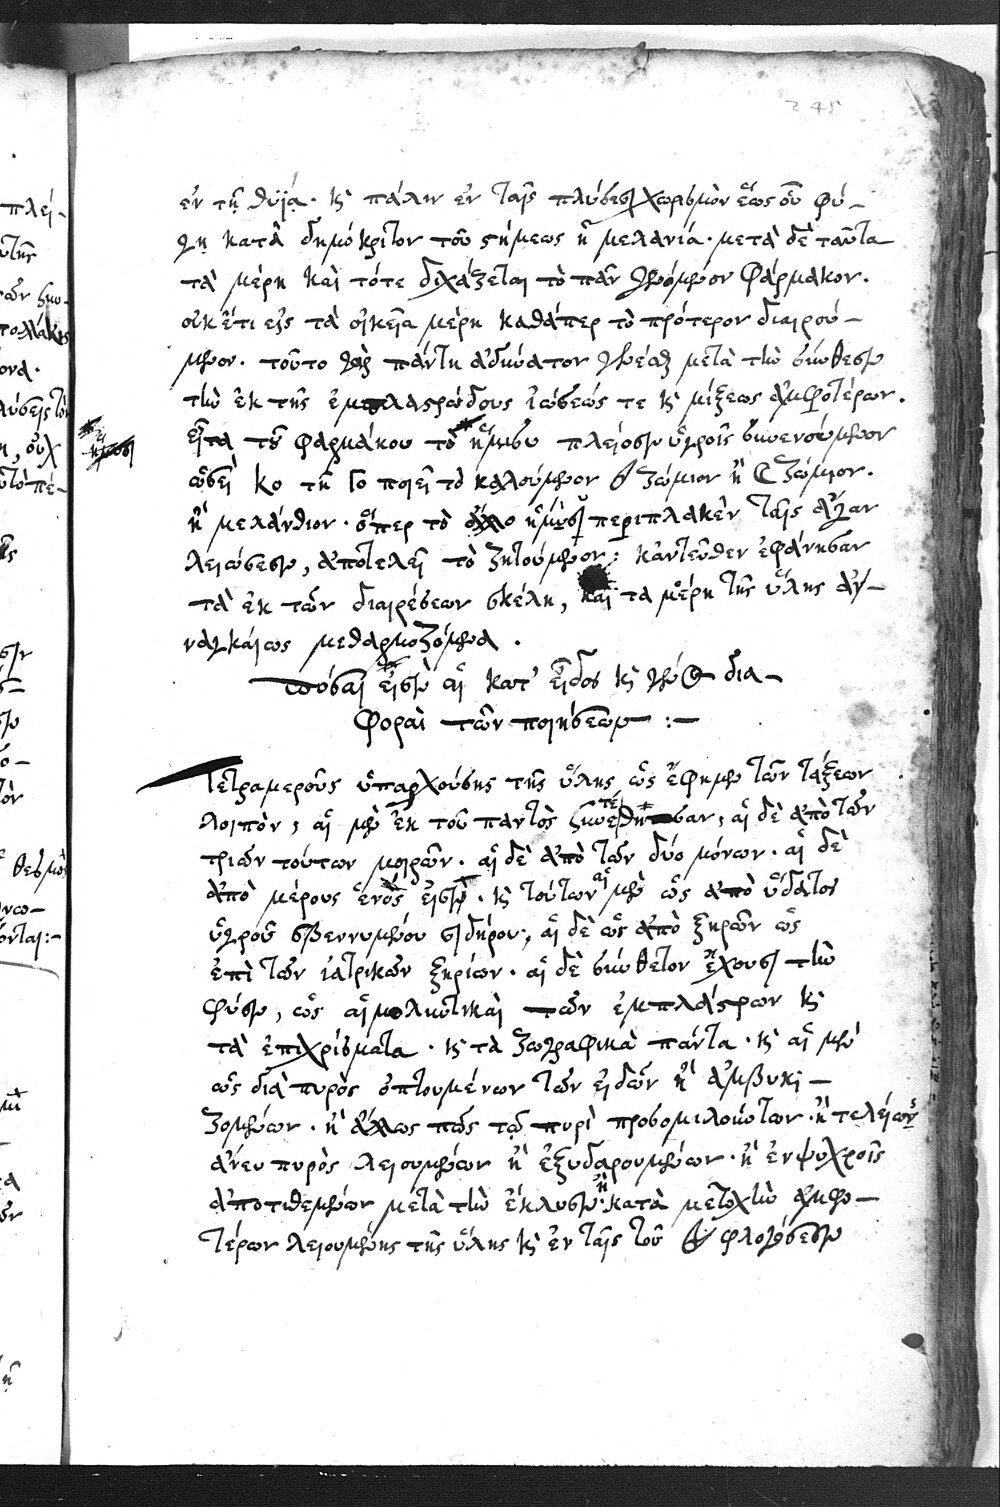 245
ἐν τῇ θυΐᾳ. κ(αὶ) πάλιν ἐν ταῖς πλύσεσι χωρισμὸν ἕως οὗ φύ-
γῃ κατὰ δημόκριτον τοῦ στήμεως ἡ μελανία. μετὰ δὲ ταῦτα
τὰ μέρη καὶ τότε διχάζεται τὸ πᾶν γενόμενον φάρμακον.
οὐκ ἔτι εἰς τὰ οἰκεῖα μέρη καθάπερ τὸ πρότερον διαιρού-
μενον. τοῦτο γὰρ πάντη ἀδύνατον γενέσθαι μετὰ τὴν σύνθεσιν
τὴν ἐκ τῆς ἐμπλαστρώδους ἰώσεώς τε κ(αὶ) μίξεως ἀμφοτέρων.
εἶτα τοῦ φαρμάκου τὸ ἥμισυ πλείοσιν ὑγροῖς συνενούμενον
ὡσεὶ κο τῇ γο ποιεῖ τὸ καλούμενον ζώμιον ἢ ζώμιον.
ἢ μελάνθιον. ὅπερ τὸ ἄλλο ἥμισυ περιπλακὲν ταῖς ἄγαν
λειώσεσιν, ἀποτελεῖ τὸ ζητούμενον: κἀντεῦθεν ἐφάνησαν
τὰ ἐκ τῶν διαιρέσεων σκέλη, καὶ τὰ μέρη τῆς ὕλης ἀν-
ναγκαίως μεθαρμοζόμενα.
Πόσαι εἰσὶν αἱ κατ' εἶδος κ(αὶ) γένος δια-
φοραὶ τῶν ποιήσεων :-
Τετραμεροῦς ὑπαρχούσης τῆς ὕλης ὡς ἔφημεν τῶν τάξεων
λοιπόν, αἱ μὲν ἐκ τοῦ παντὸς συνετέθησαν, αἱ δὲ ἀπὸ τῶν
τριῶν τούτων μοιρῶν. αἱ δὲ ἀπὸ τῶν δύο μόνων. αἱ δὲ
ἀπὸ μέρους ἑνός εἰσιν. κ(αὶ) τούτων αἱ μὲν ὡς ἀπὸ ὕδατος
ὑγροῦ σβεννυμένου σιδήρου, αἱ δὲ ὡς ἀπὸ ξηρῶν ὡς
ἐπὶ τῶν ἰατρικῶν ξηρίων. αἱ δὲ σύνθετον ἔχουσι τὴν
φύσιν, ὡς αἱ μολυντικαὶ τῶν ἐμπλάστρων κ(αὶ)
τὰ ἐπιχρίσματα. κ(αὶ) τὰ ζωγραφικὰ πάντα. κ(αὶ) αἱ μὲν
ὡς διὰ πυρὸς ὀπτουμένων τῶν εἰδῶν ἢ ἀμβυκι-
ζομένων. ἢ ἄλλως πως τῷ πυρὶ προσομιλούντων. ἢ τελείως
ἄνευ πυρὸς λειουμένων ἢ ἐξυδαρουμένων. ἢ ἐν ψυχροῖς
ἀποτιθεμένων μετὰ τὴν ἔκλυσιν. ἢ κατὰ μετοχὴν ἀμφο-
τέρων λειουμένης τῆς ὕλης κ(αὶ) ἐν ταῖς τοῦ φλογώσεσιν